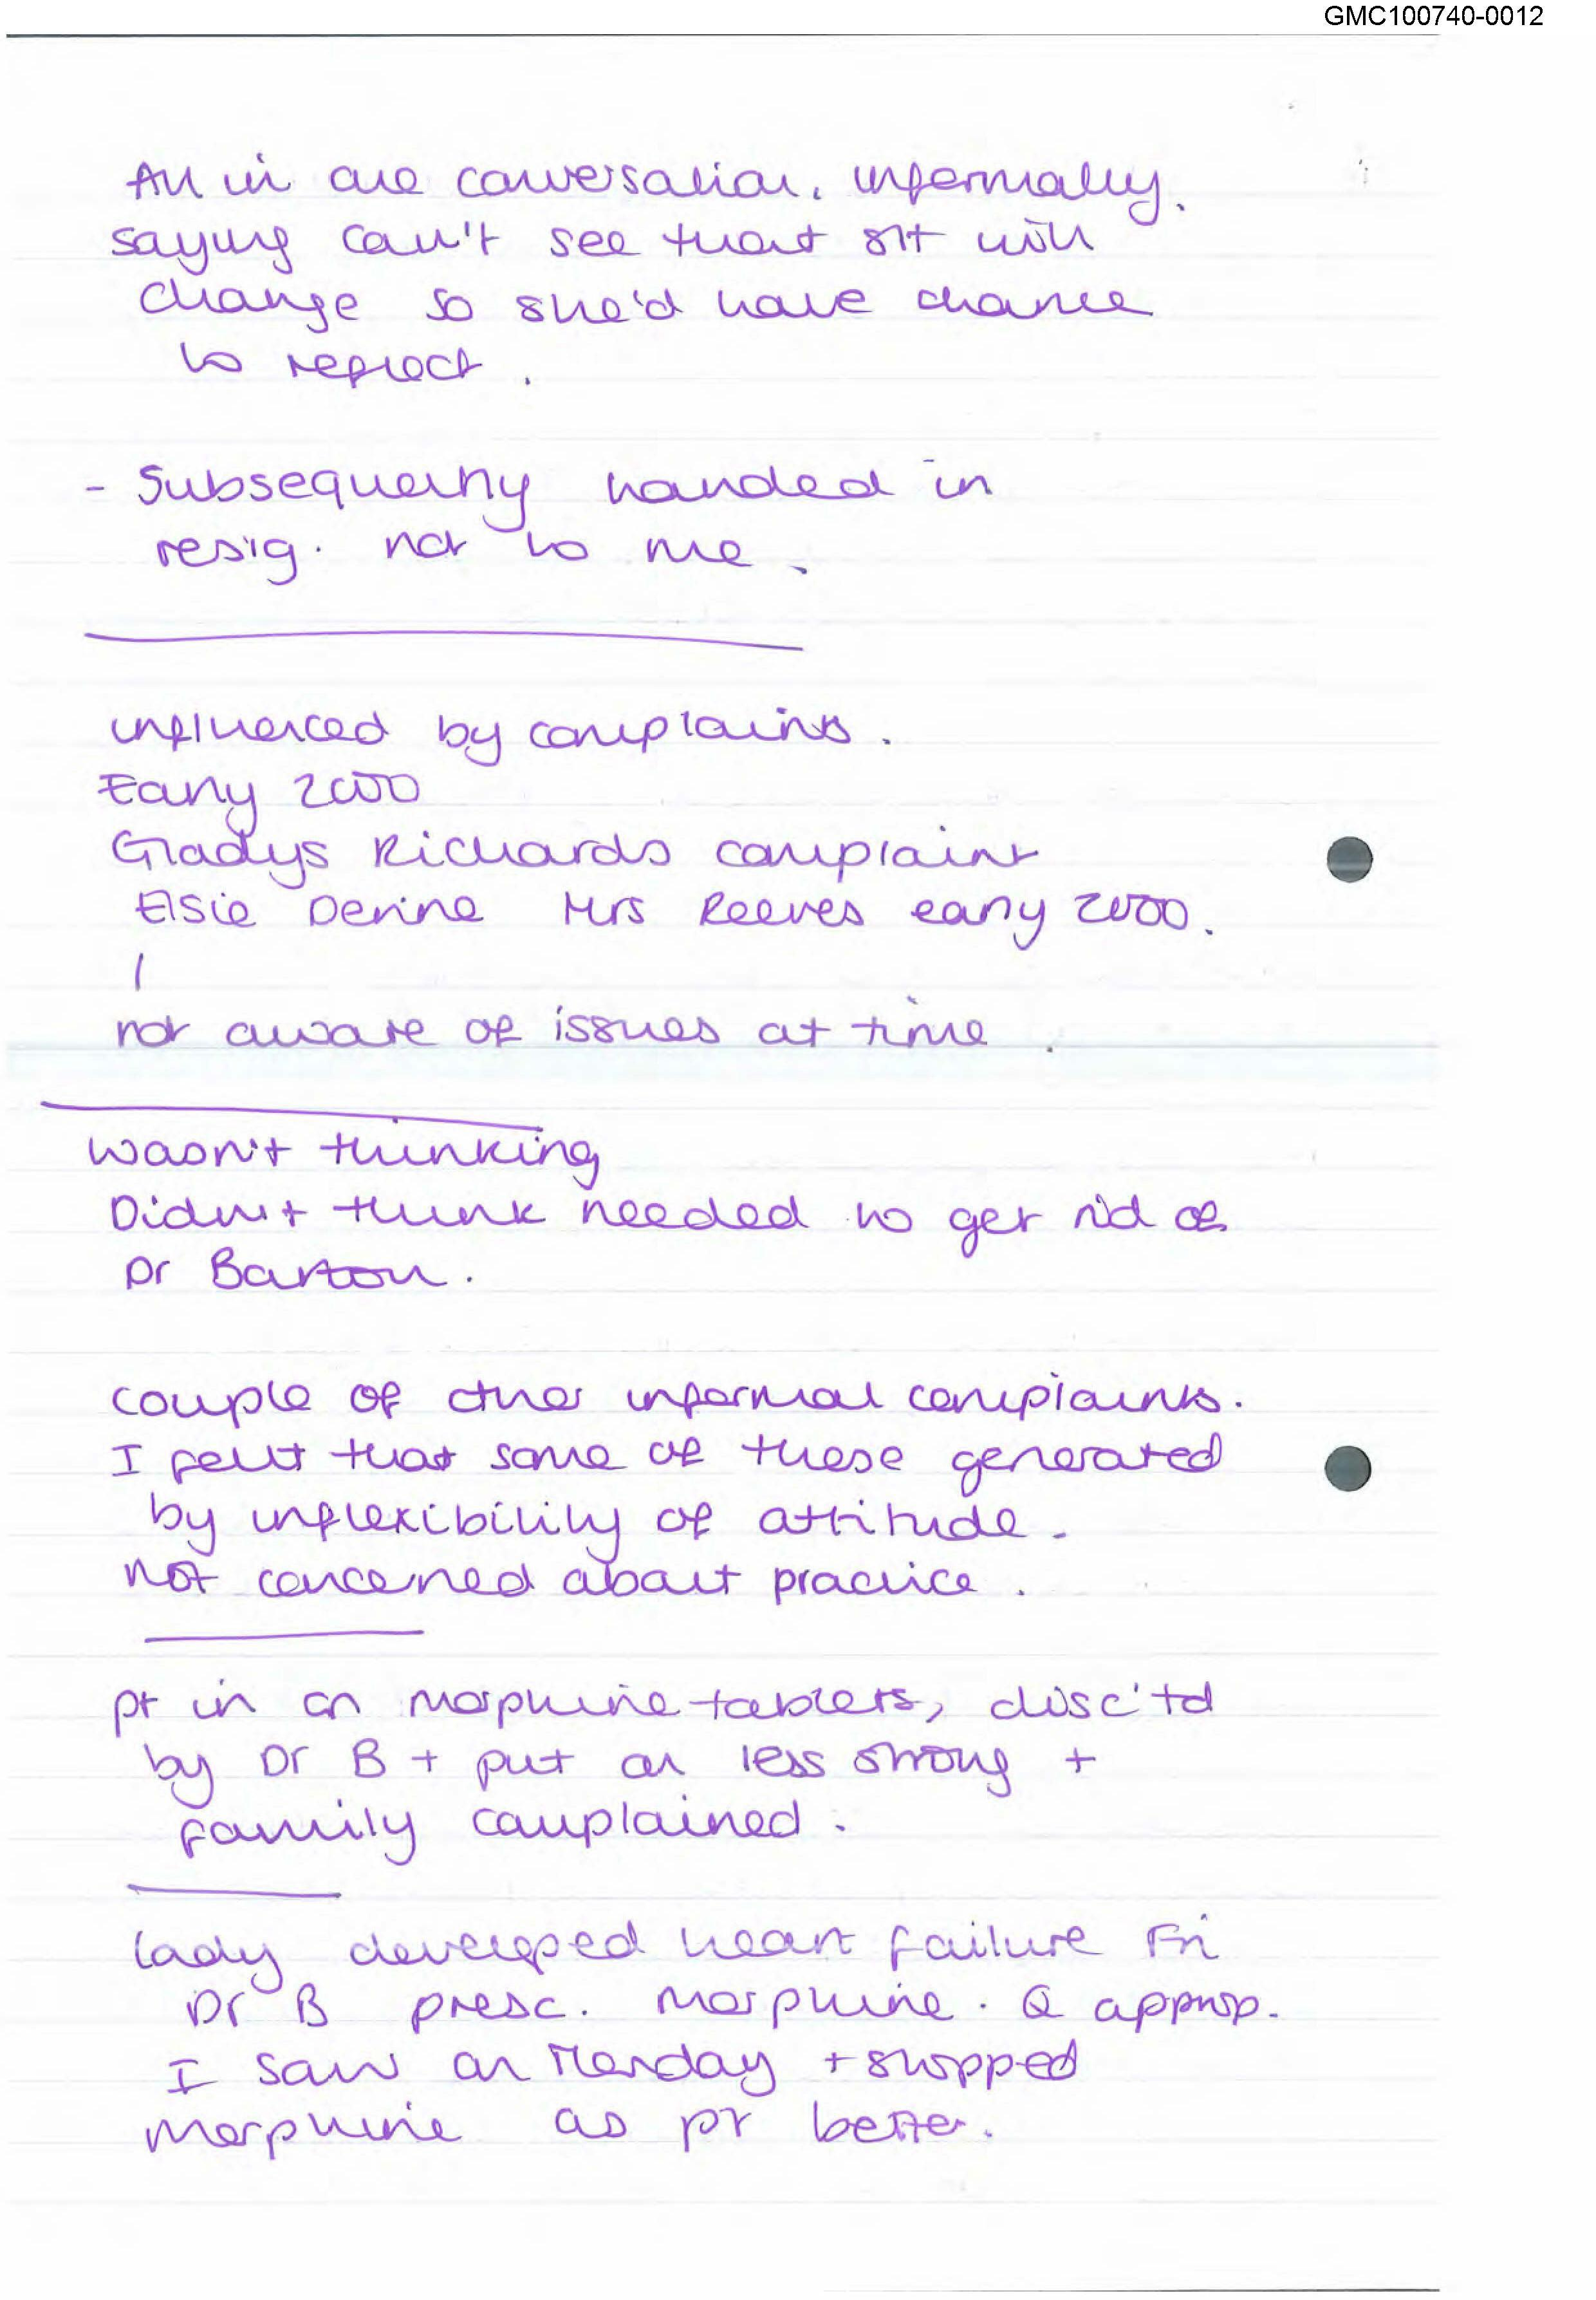 GMC100740-0012
All in one conversation, informally.
saying can't see that sit will
change so she'd have chance
to reflect.
- Subsequently handed in
resig. not to me.
influenced by complaints.
Early 2000
Gladys Richards complaint
Elsie Devine Mrs Reeves early 2000.
not aware of issues at time.
Wasn't thinking
Didn't think needed to get rid of
Dr Barton.
couple of other informal complaints.
I felt that some of these generated
by inflexibility of attitude.
not concerned about practice.
pt in on morphine tablets, disc'td
by Dr B + put on less strong +
family complained.
lady developed heart failure Fri
Dr B presc. morphine. Q approp.
I saw on Monday + stopped
morphine as pt better.